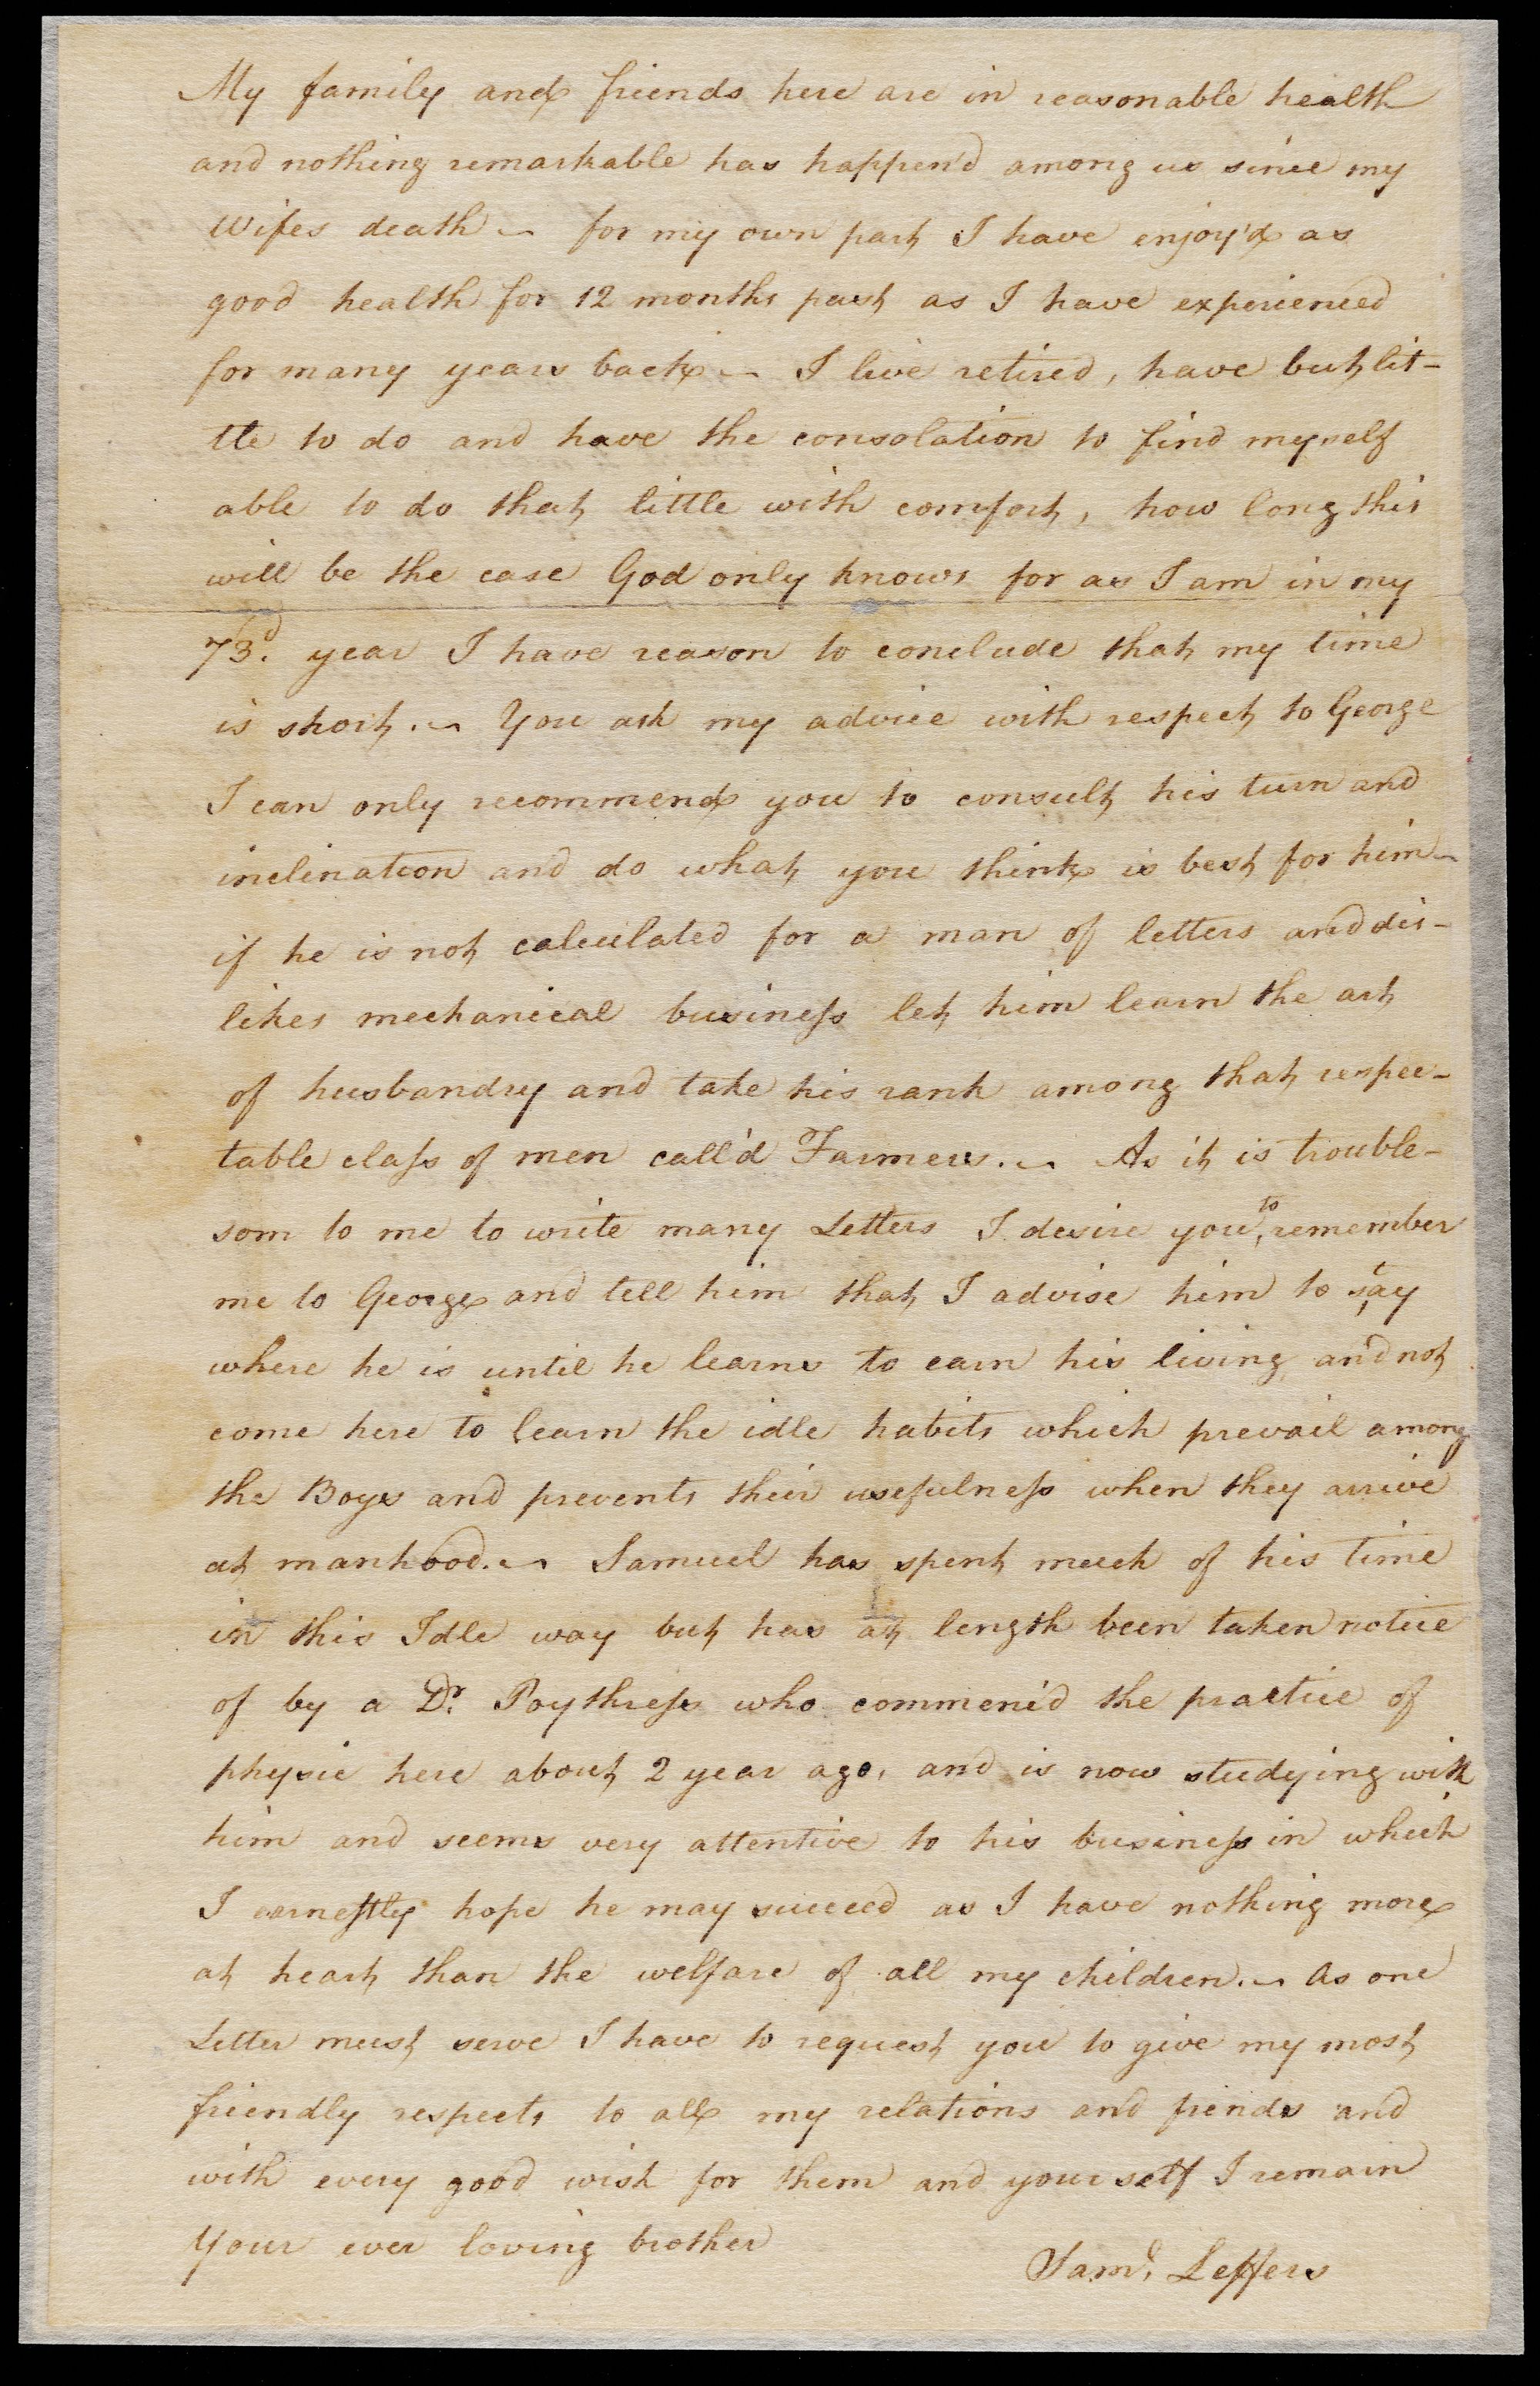 My family and friends here are in reasonable health
and nothing remarkable has happen'd among us since my
Wifes death ~ for my own part I have enjoy'd as
good health for 12 months past as I have experienced
for many years back ~ I live retired, have but lit-
tle to do and have the consolation to find myself
able to do that little with comfort, how long this
will be the case God only knows for as I am in my
73.d year I have reason to conclude that my time
is short. ~ You ask my advice with respect to George
I can only recommend you to consult his turn and
inclination and do what you think is best for him ~
if he is not calculated for a man of letters and dis-
likes mechanical business let him learn the art
of husbandry and take his rank among that respec-
table class of men call'd Farmers. ~ As it is trouble-
som to me to write many Letters I desire you to remember
me to George and tell him that I advise him to stay
where he is until he learns to earn his living and not
come here to learn the idle habits which prevail among
the Boys and prevents their usefulness when they arrive
at manhood. ~ Samuel has spent much of his time
in this Idle way but has at length been taken notice
of by a Dr. Poythress who commenc'd the practice of
physic here about 2 year ago, and is now studying with
him and seems very attentive to his business in which
I earnestly hope he may succeed as I have nothing more
at heart than the welfare of all my children. ~ As one
Letter must serve I have to request you to give my most
friendly respects to all my relations and friends and
with every good wish for them and yourself I remain
Your ever loving brother
Saml. Leffers